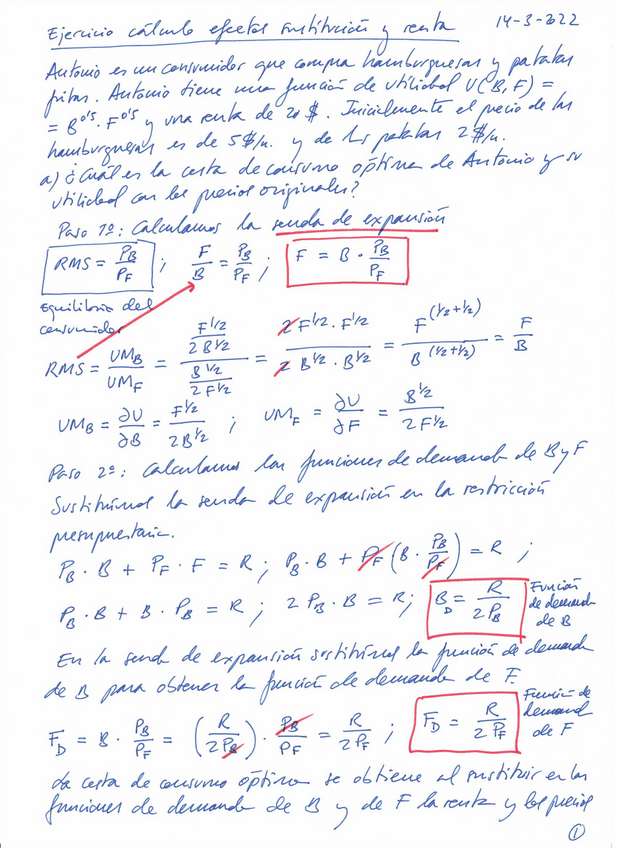 Ejercicio cálculo efectos sustitución y renta 14-3-2022
Antonio es un consumidor que compra hamburguesas y patatas
fritas. Antonio tiene una función de utilidad U(B,F) =
= B^0'5 · F^0'5 y una renta de 20 $. Inicialmente el precio de las
hamburguesas es de 5$/u. y de las patatas 2 $/u.
a) ¿Cuál es la cesta de consumo óptima de Antonio y su
utilidad con los precios originales?
Paso 1º: Calculamos la senda de expansión
RMS = P_B/P_F ; F/B = P_B/P_F ; F = B · P_B/P_F
Equilibrio del
consumidor
RMS = UM_B/UM_F = (F^1/2 / 2B^1/2)/(B^1/2 / 2F^1/2) = 2F^1/2 · F^1/2 / 2B^1/2 · B^1/2 = F^(1/2+1/2) / B^(1/2+1/2) = F/B
UM_B = ∂U/∂B = F^1/2 / 2B^1/2 ; UM_F = ∂U/∂F = B^1/2 / 2F^1/2
Paso 2º: Calculamos las funciones de demanda de B y F
Sustituimos la senda de expansión en la restricción
presupuestaria.
P_B · B + P_F · F = R ; P_B · B + P_F (B · P_B/P_F) = R ;
P_B · B + B · P_B = R ; 2 P_B · B = R ; B_D = R/2P_B Función de demanda de B
En la senda de expansión sustituimos la función de demanda
de B para obtener la función de demanda de F.
F_D = B · P_B/P_F = (R/2P_B) · P_B/P_F = R/2P_F ; F_D = R/2P_F Función de demanda de F
La cesta de consumo óptima se obtiene al sustituir en las
funciones de demanda de B y de F la renta y los precios
1